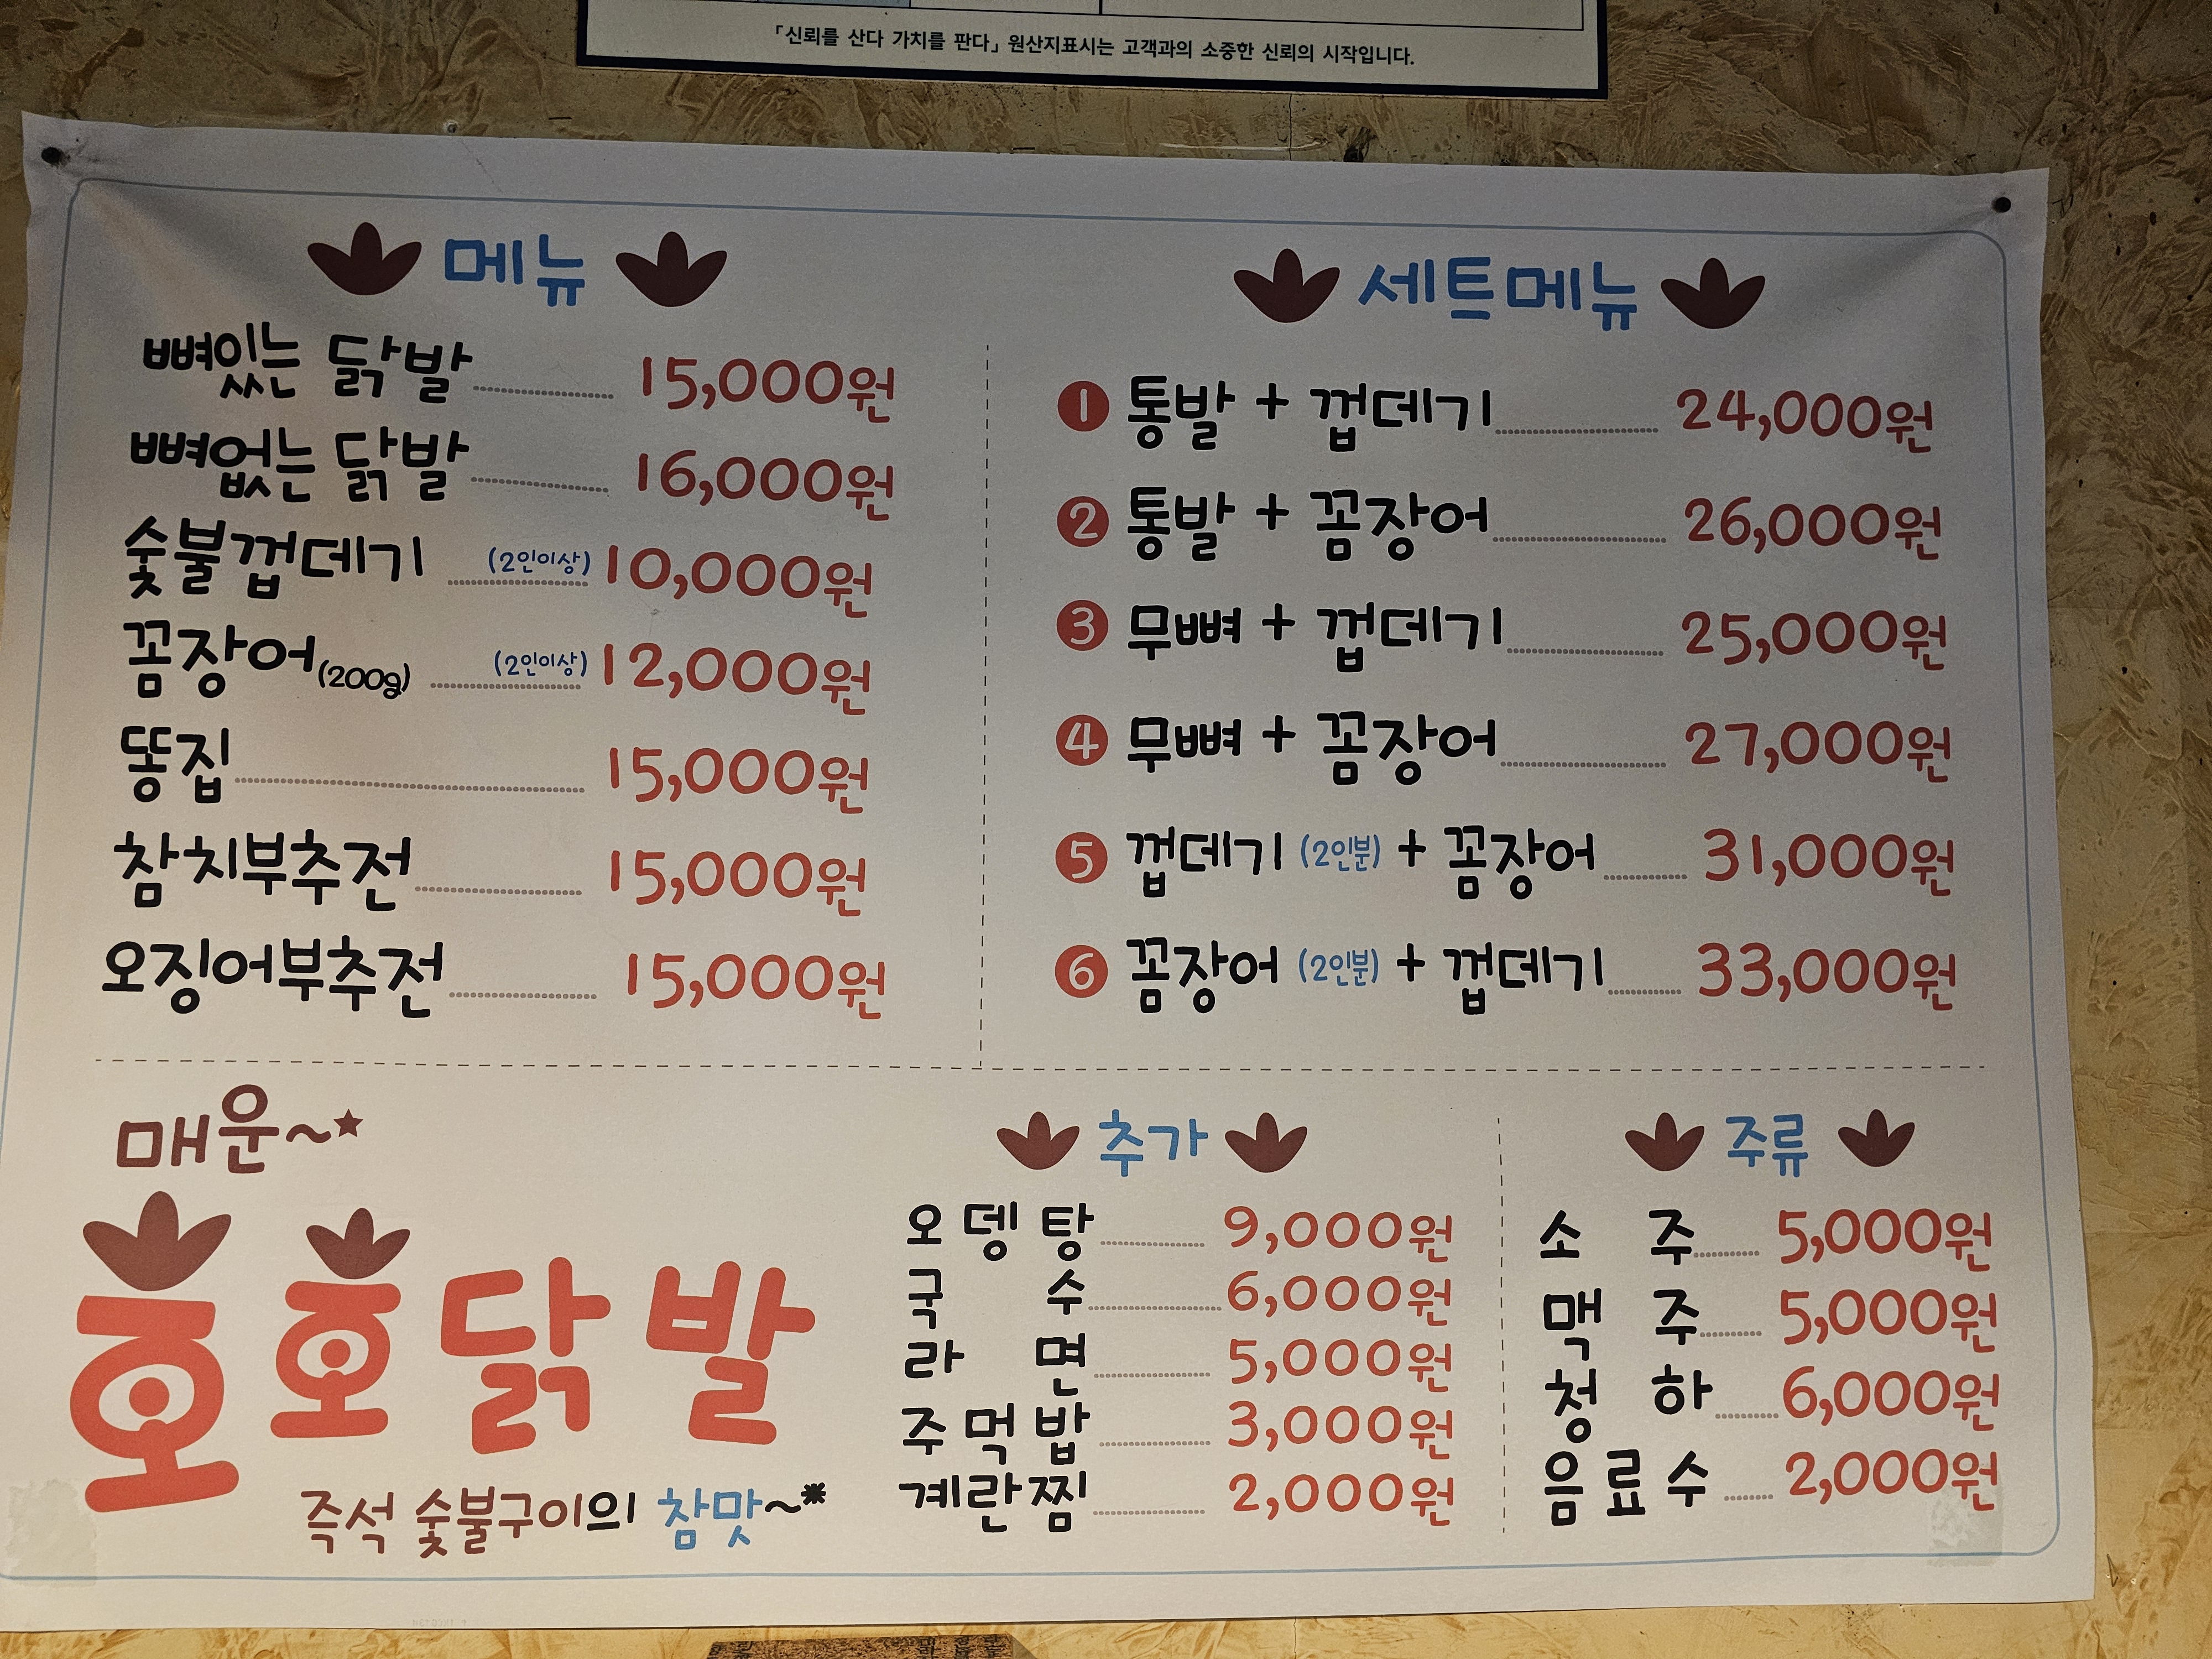 「신뢰를 산다 가치를 판다」 원산지표시는 고객과의 소중한 신뢰의 시작입니다.
메뉴
뼈있는 닭발 15,000원
뼈없는 닭발 16,000원
숯불껍데기 (2인이상) 10,000원
꼼장어(200g) (2인이상) 12,000원
똥집 15,000원
참치부추전 15,000원
오징어부추전 15,000원
세트메뉴
1 통발 + 껍데기 24,000원
2 통발 + 꼼장어 26,000원
3 무뼈 + 껍데기 25,000원
4 무뼈 + 꼼장어 27,000원
5 껍데기 (2인분) + 꼼장어 31,000원
6 꼼장어 (2인분) + 껍데기 33,000원
매운~★
호호닭발
즉석 숯불구이의 참맛~*
추가
오뎅탕 9,000원
국수 6,000원
라면 5,000원
주먹밥 3,000원
계란찜 2,000원
주류
소주 5,000원
맥주 5,000원
청하 6,000원
음료수 2,000원